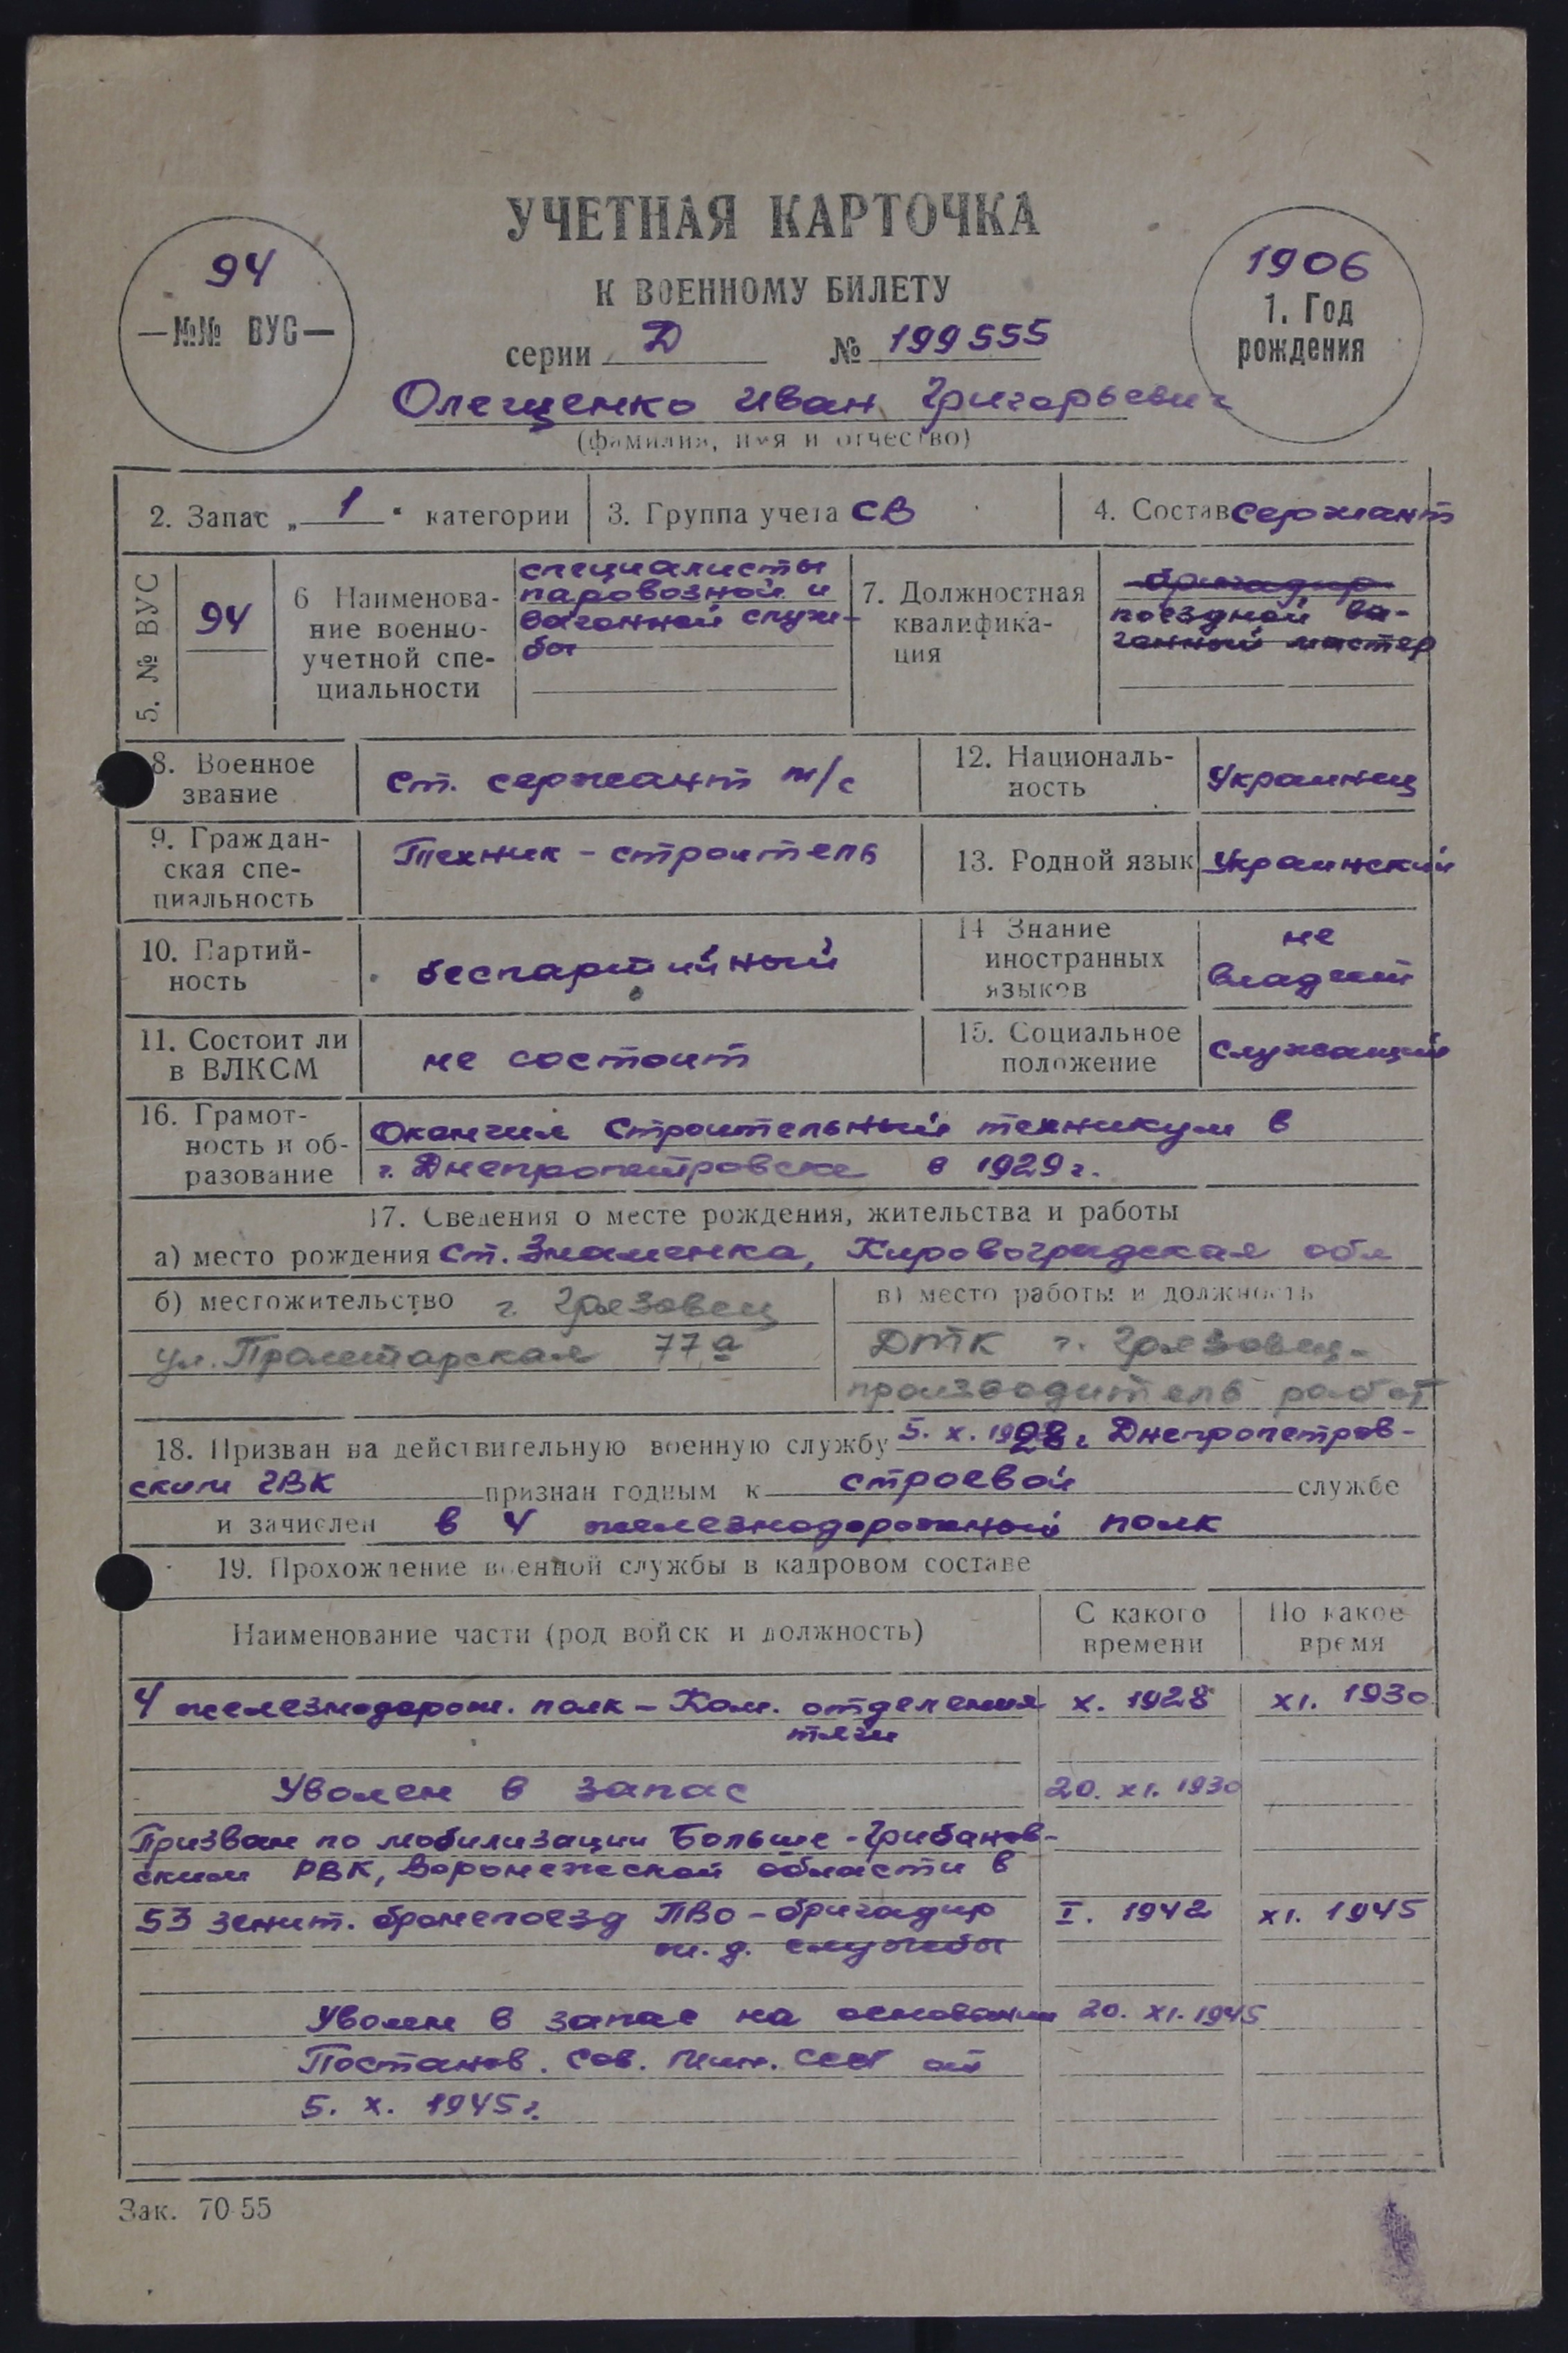 УЧЕТНАЯ КАРТОЧКА
К ВОЕННОМУ БИЛЕТУ
94
—№№ ВУС—
1906
1. Год
рождения
серии Д № 199555
Олещенко Иван Григорьевич
(фамилия, имя и отчество)
2. Запас „ 1 " категории
3. Группа учета СВ
4. Состав сержант
5. № ВУС
94
6 Наименова-
ние военно-
учетной спе-
циальности
специалисты
паровозной и
вагонной служ-
бы
7. Должностная
квалифика-
ция
бригадир
поездной ва-
гонный мастер
8. Военное
звание
ст. сержант т/с
12. Националь-
ность
Украинец
9. Граждан-
ская спе-
циальность
Техник - строитель
13. Родной язык Украинский
10. Партий-
ность
беспартийный
14 Знание
иностранных
языков
не
владеет
11. Состоит ли
в ВЛКСМ
не состоит
15. Социальное
положение
Служащий
16. Грамот-
ность и об-
разование
Окончил Строительный техникум в
г. Днепропетровске в 1929 г.
17. Сведения о месте рождения, жительства и работы
а) место рождения ст. Знаменка, Кировоградская обл
б) местожительство г. Грязовец
ул. Пролетарская 77а
в) место работы и должность
ДТК г. Грязовец-
производитель работ
18. Призван на действительную военную службу 5. X. 1928 г Днепропетров-
ским ГВК признан годным к строевой службе
и зачислен в 4 железнодорожный полк
19. Прохождение военной службы в кадровом составе
Наименование части (род войск и должность)
С какого
времени
По какое
время
4 железнодорож. полк - Ком. отделения X. 1928 XI. 1930
тяги
Уволен в запас 20. XI. 1930
Призван по мобилизации Больше-Грибанов-
ским РВК, Воронежской области в
53 зенит. бронепоезд ПВО - бригадир I. 1942 XI. 1945
ж. д. службы
Уволен в запас на основании 20. XI. 1945
Постанов. Сов. Мин. СССР от
5. X. 1945 г.
Зак. 70-55